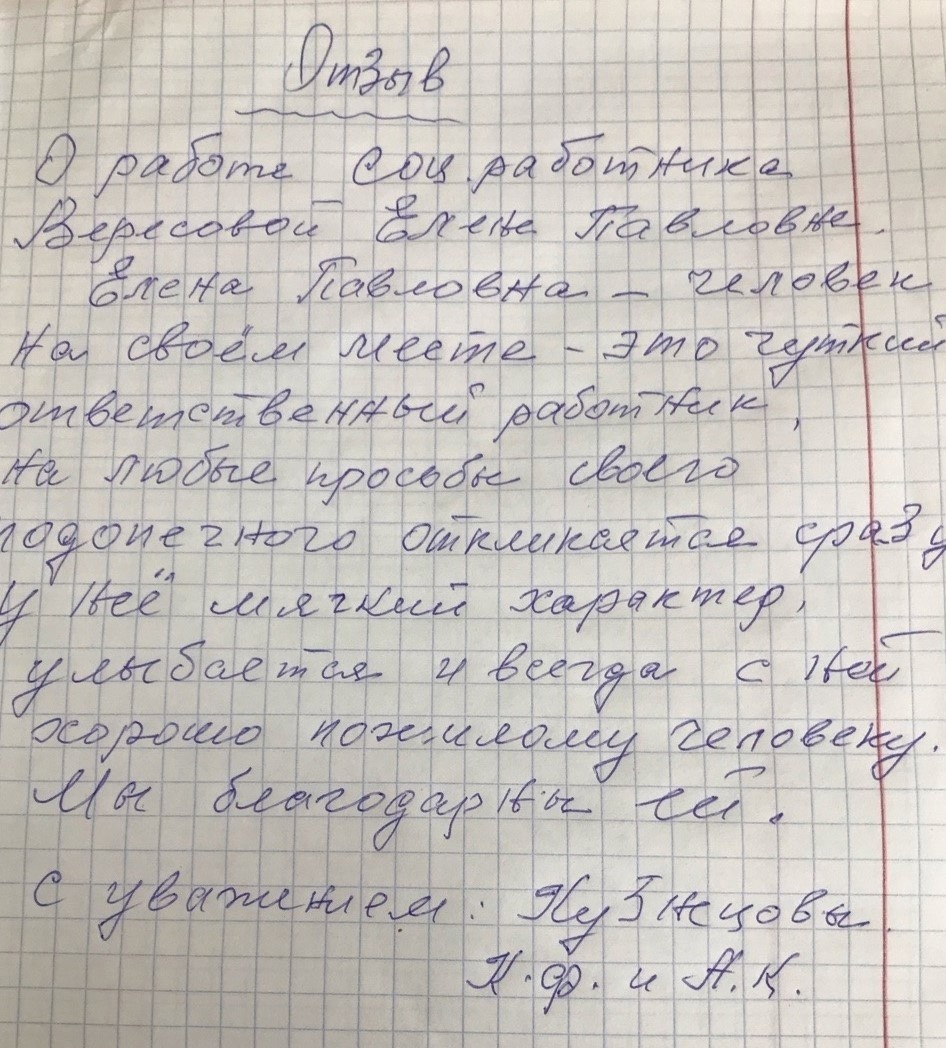 Отзыв
О работе соц.работника
Вересовой Елене Павловне.
Елена Павловна – человек
на своём месте – это чуткий
ответственный работник,
на любые просьбы своего
подопечного откликается сразу
у неё мягкий характер,
улыбается и всегда с ней
хорошо пожилому человеку.
Мы благодарны ей.
С уважением: Кузнецовы
К.Ф. и А.К.